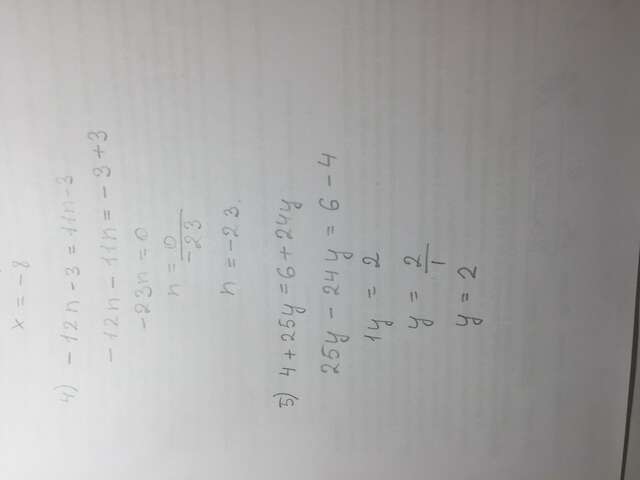 x = -8
4) -12n - 3 = 11n - 3
-12n - 11n = -3 + 3
-23n = 0
n = 0/-23
n = -23.
5) 4 + 25y = 6 + 24y
25y - 24y = 6 - 4
1y = 2
y = 2/1
y = 2